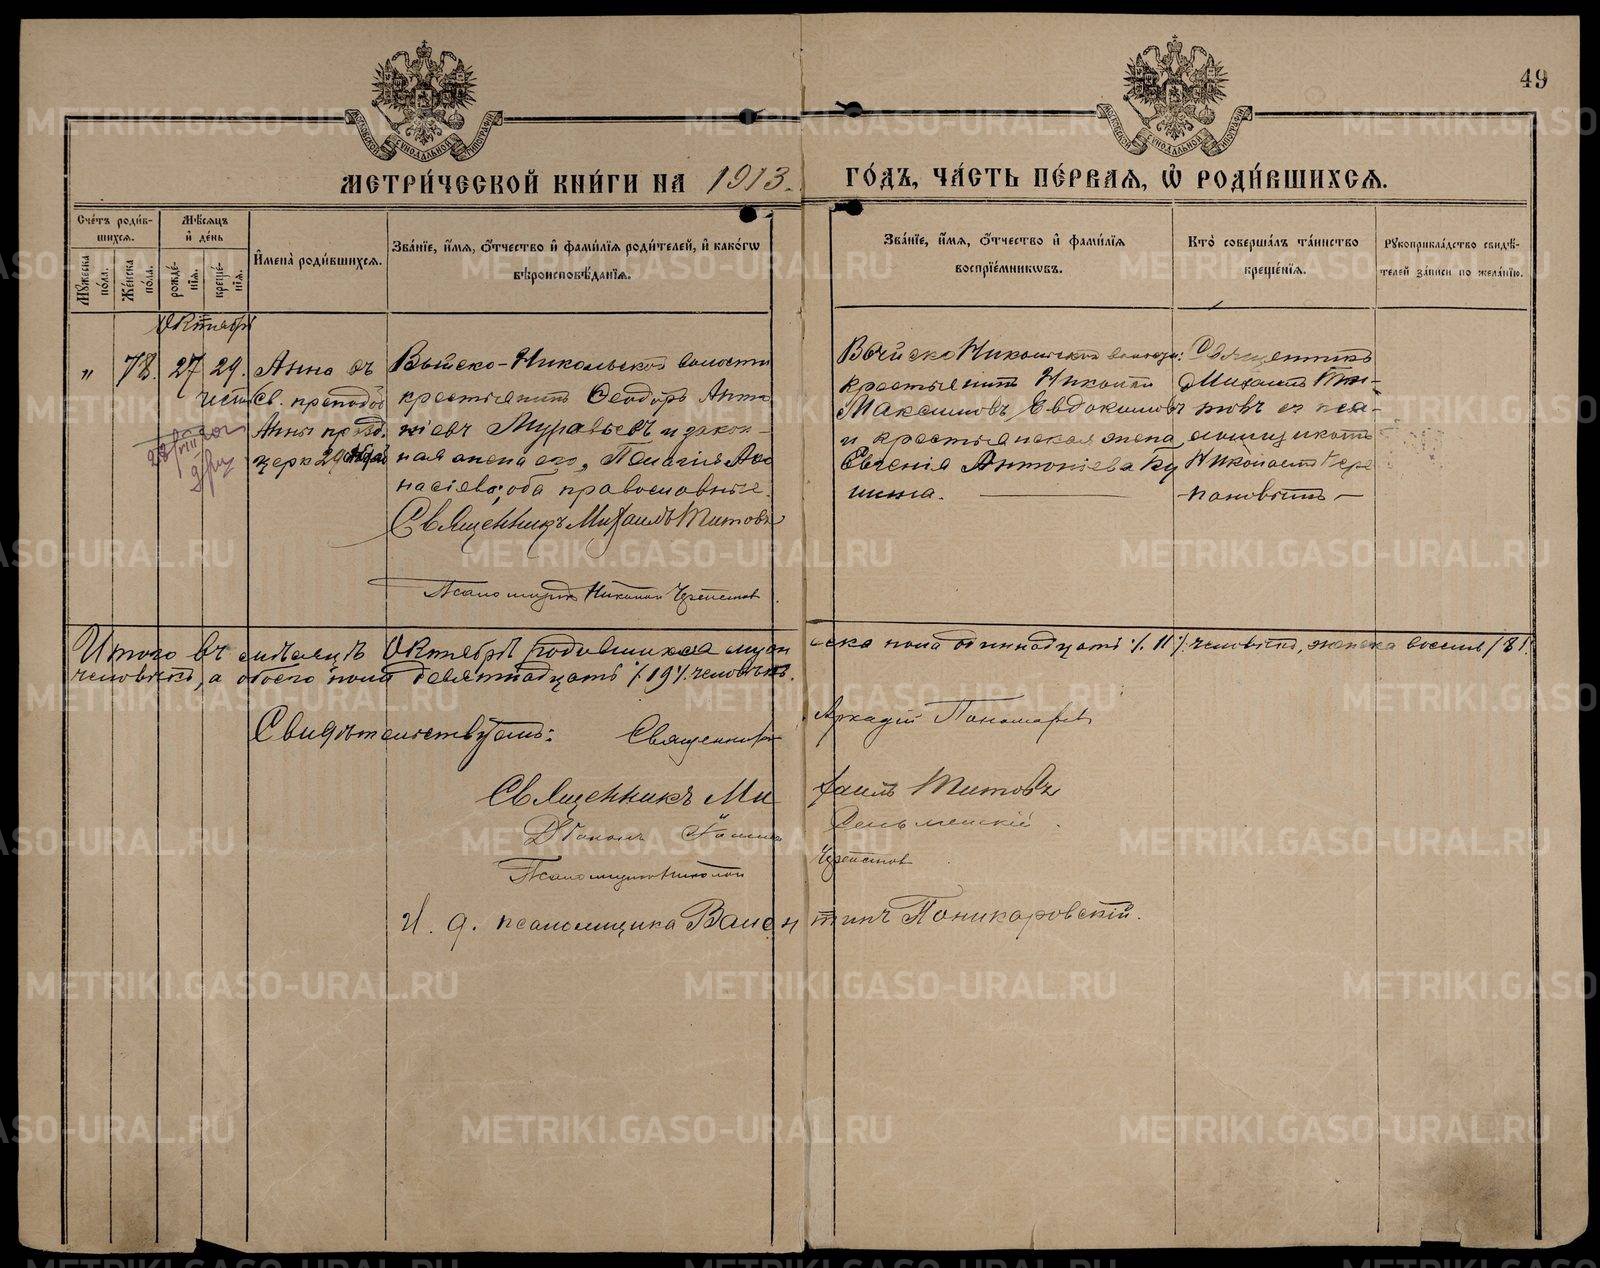 49
МОСКОВСКОЙ СѴНОДАЛЬНОЙ ТИПОГРАФІИ
МОСКОВСКОЙ СѴНОДАЛЬНОЙ ТИПОГРАФІИ
МЕТРИ́ЧЕСКОЙ КНИ́ГИ НА 1913. ГО́ДЪ, ЧА́СТЬ ПЕ́РВАЯ, Ѡ РОДИ́ВШИХСЯ.
Сче́тъ роди́в-
шихся.
Мꙋжеска по́ла.
Же́нска по́ла.
Мѣ́сяцъ
и҆ де́нь
рожде́нїя.
креще́нїя.
И҆мена̀ роди́вшихся.
Зва́нїе, и҆́мя, ѻ҆́тчество и҆ фами́лїя роди́телей, и҆ како́гѡ
вѣроисповѣ́данїя.
Зва́нїе, и҆́мя, ѻ҆́тчество и҆ фами́лїя
воспрїе́мникѡвъ.
Кто̀ соверша́лъ та́инство
креще́нїя.
Рꙋкоприкла́дство свидѣ́-
телей за́писи по жела́нїю.
Октябрь
" 78. 27 29.
Анна въ
честь Св. преподоб
Анны празд.
церк 29 Октяб
Выйско-Никольской волости
крестьянинъ Ѳеодоръ Анто
ніевъ Муравьевъ и закон-
ная жена его, Пелагія Аѳа
насіева; оба православные.
Священникъ Михаилъ Титовъ
Псаломщикъ Николай
Выйско Никольской волости:
крестьянинъ Николай
Максимовъ Евдокимовъ
и крестьянская жена
Евгенія Антоніева Ку
Священникъ
Михаилъ Ти-
товъ съ пса-
ломщикомъ
Николаемъ
Итого въ мѣсяцѣ Октябрѣ родившихся муж ска пола одиннадцать /.11/. человѣкъ, женска восемь /8/.
человѣкъ, а обоего пола девятнадцать /.19/. человѣкъ.
Свидѣтельствуемъ: Священникъ Аркадій Пономаревъ
Священникъ Ми хаилъ Титовъ
Діаконъ
Псаломщикъ Николай
И. д. псаломщика Вален тинъ Поникаровскій.
METRIKI.GASO-URAL.RU